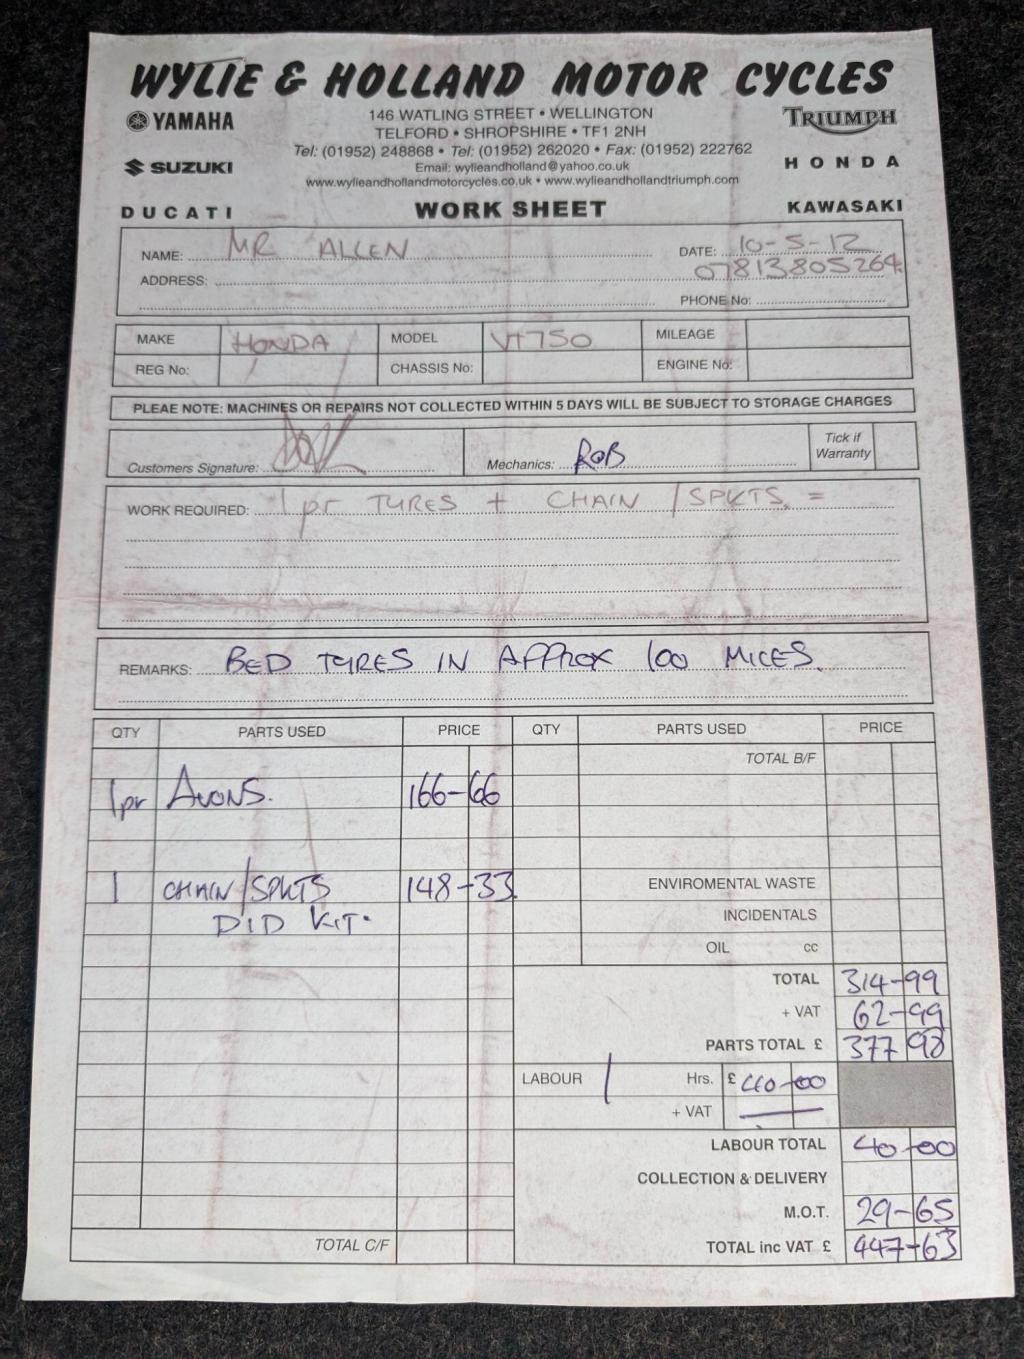 WYLIE & HOLLAND MOTOR CYCLES
YAMAHA
146 WATLING STREET • WELLINGTON
TELFORD • SHROPSHIRE • TF1 2NH
TRIUMPH
Tel: (01952) 248868 • Tel: (01952) 262020 • Fax: (01952) 222762
SUZUKI
Email: wylieandholland@yahoo.co.uk
HONDA
www.wylieandhollandmotorcycles.co.uk • www.wylieandhollandtriumph.com
DUCATI WORK SHEET KAWASAKI
NAME: MR ALLEN DATE: 10-5-12
ADDRESS: 07813805264
PHONE No:
MAKE HONDA MODEL VT750 MILEAGE
REG No: CHASSIS No: ENGINE No:
PLEAE NOTE: MACHINES OR REPAIRS NOT COLLECTED WITHIN 5 DAYS WILL BE SUBJECT TO STORAGE CHARGES
Customers Signature: Mechanics: ROB Tick if
Warranty
WORK REQUIRED: 1 pr TYRES + CHAIN / SPKTS. =
REMARKS: BED TYRES IN APPROX 100 MILES.
QTY PARTS USED PRICE QTY PARTS USED PRICE
TOTAL B/F
1pr AVONS. 166-66
1 CHAIN/SPKTS 148-33 ENVIROMENTAL WASTE
DID KIT. INCIDENTALS
OIL cc
TOTAL 314-99
+ VAT 62-99
PARTS TOTAL £ 377 98
LABOUR 1 Hrs. £ 40-00
+ VAT —
LABOUR TOTAL 40-00
COLLECTION & DELIVERY
M.O.T. 29-65
TOTAL C/F TOTAL inc VAT £ 447-63